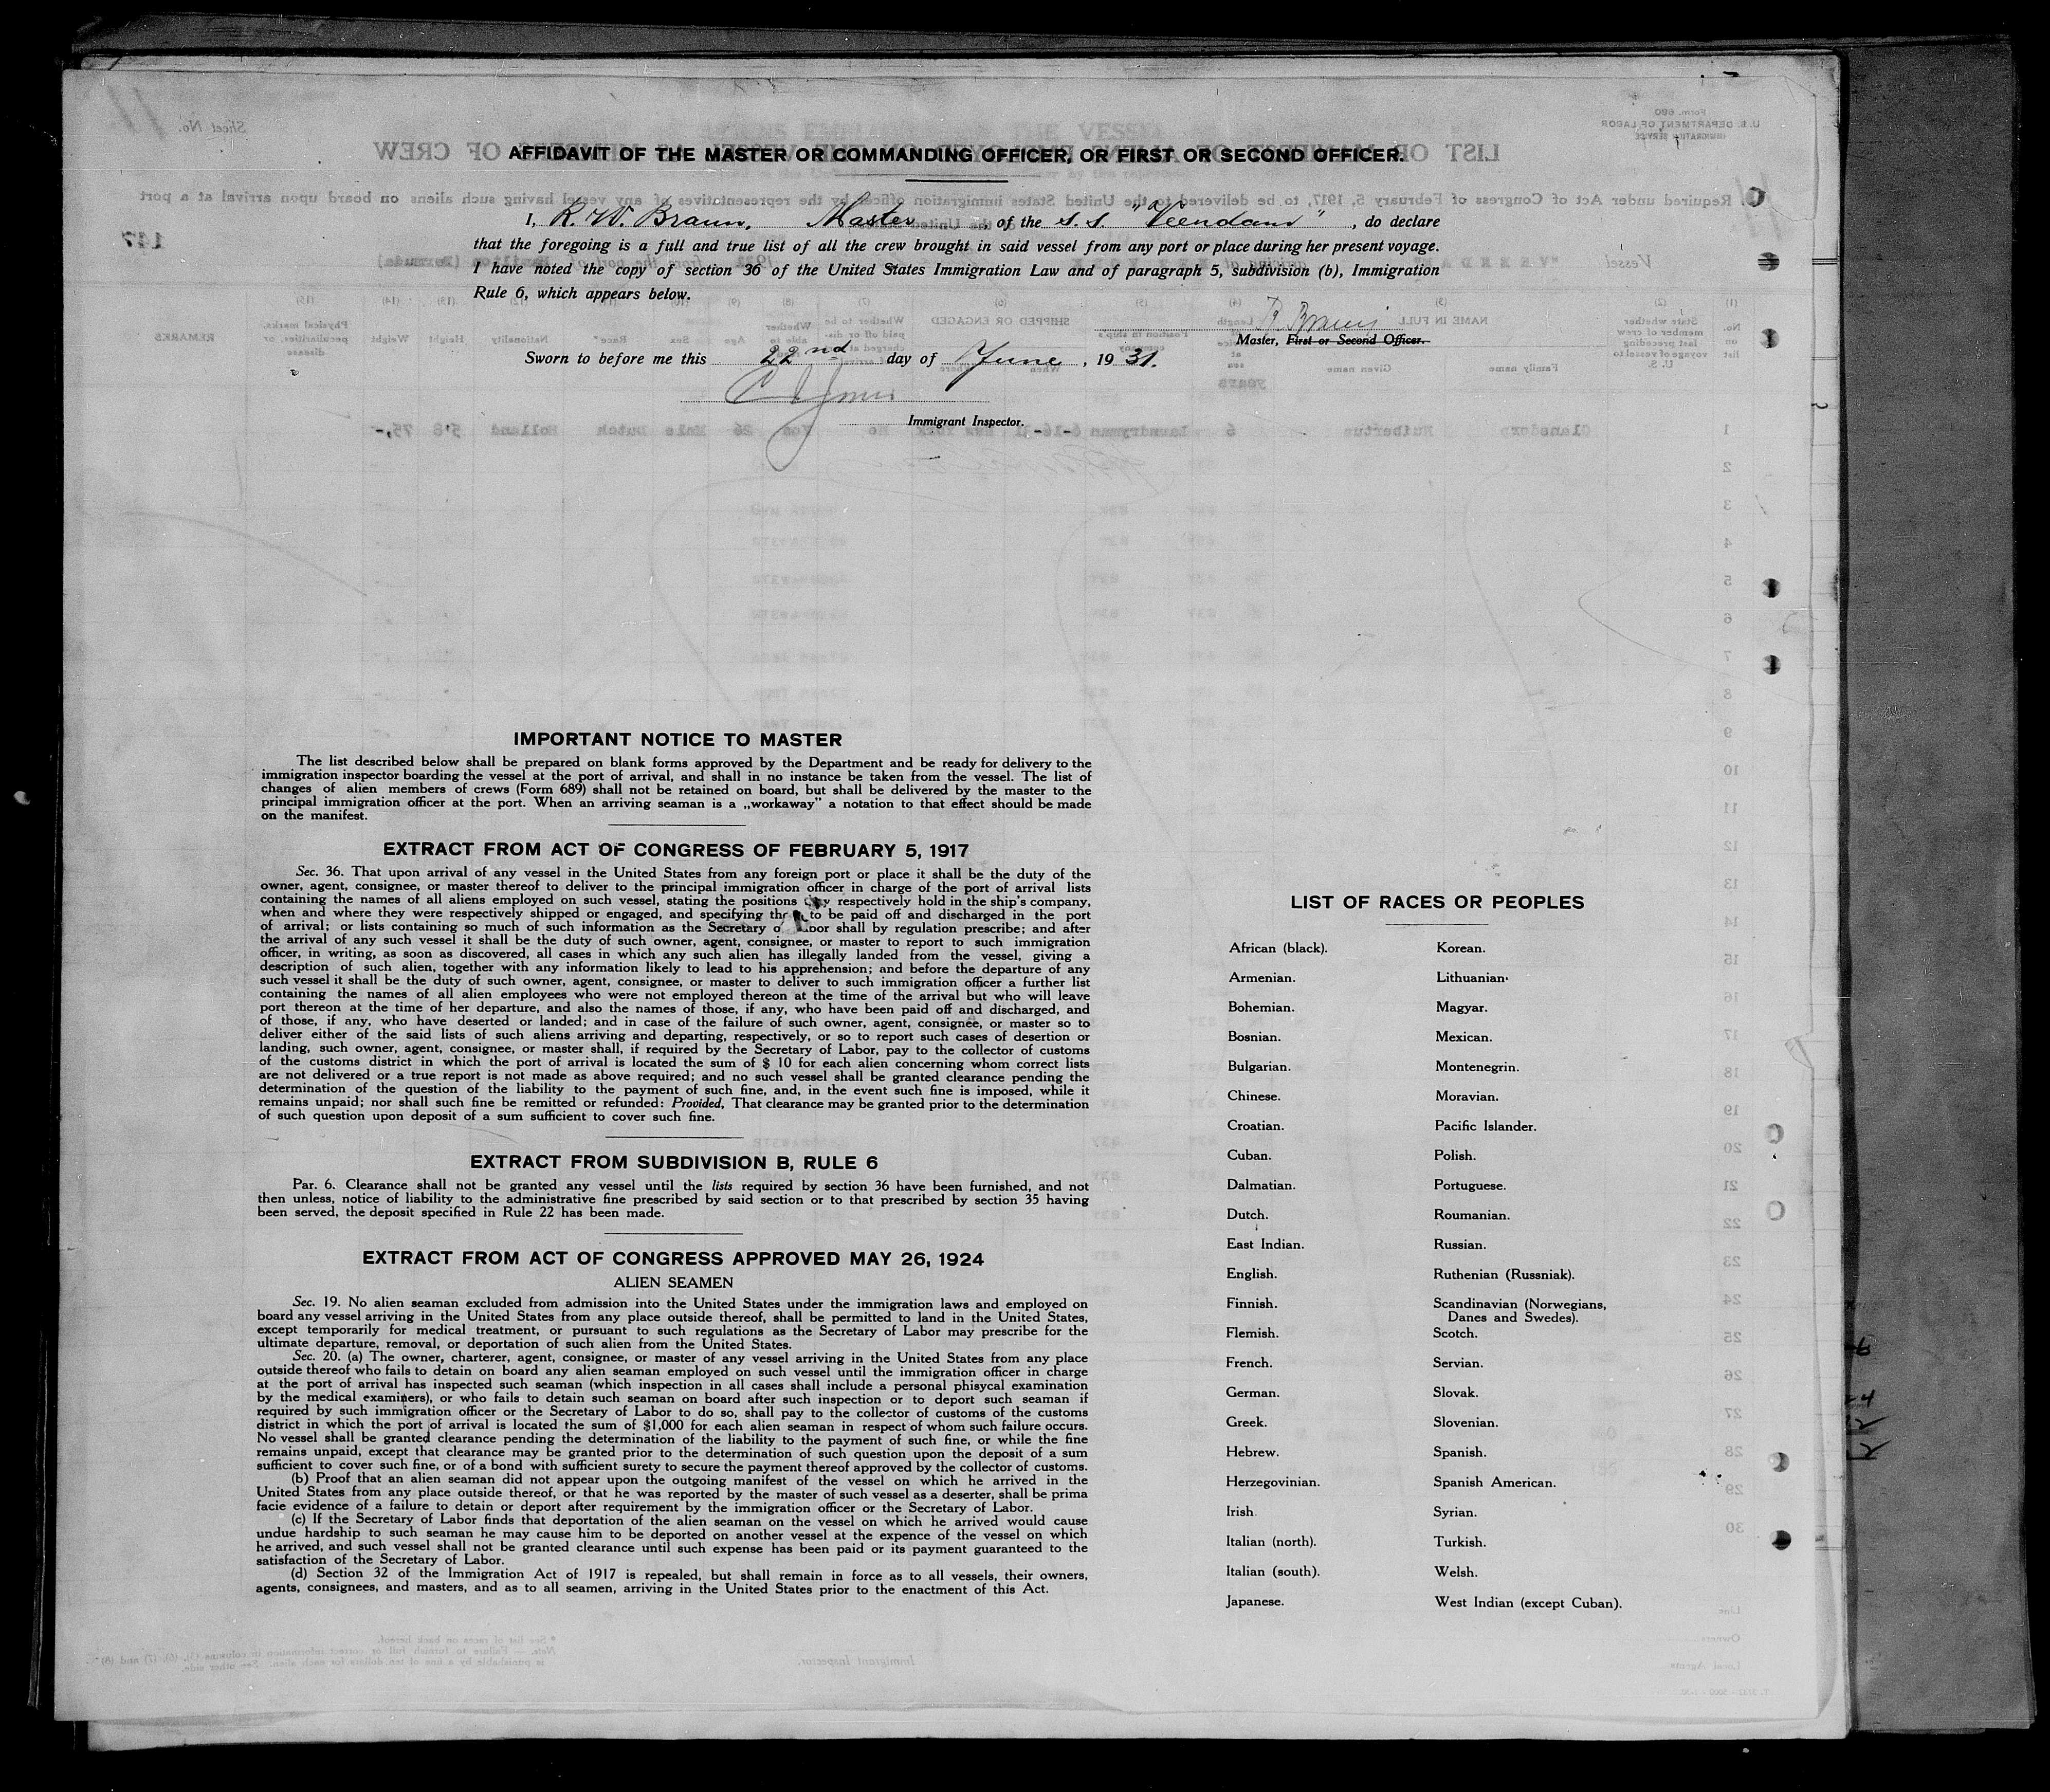 AFFIDAVIT OF THE MASTER OR COMMANDING OFFICER, OR FIRST OR SECOND OFFICER.
I, R. W. Braun, Master, of the S. S. "Veendam", do declare
that the foregoing is a full and true list of all the crew brought in said vessel from any port or place during her present voyage.
I have noted the copy of section 36 of the United States Immigration Law and of paragraph 5, subdivision (b), Immigration
Rule 6, which appears below.
Master, First or Second Officer.
Sworn to before me this 22nd day of June, 1931.
Immigrant Inspector.
IMPORTANT NOTICE TO MASTER
The list described below shall be prepared on blank forms approved by the Department and be ready for delivery to the
immigration inspector boarding the vessel at the port of arrival, and shall in no instance be taken from the vessel. The list of
changes of alien members of crews (Form 689) shall not be retained on board, but shall be delivered by the master to the
principal immigration officer at the port. When an arriving seaman is a „workaway" a notation to that effect should be made
on the manifest.
EXTRACT FROM ACT OF CONGRESS OF FEBRUARY 5, 1917
Sec. 36. That upon arrival of any vessel in the United States from any foreign port or place it shall be the duty of the
owner, agent, consignee, or master thereof to deliver to the principal immigration officer in charge of the port of arrival lists
containing the names of all aliens employed on such vessel, stating the positions they respectively hold in the ship's company,
when and where they were respectively shipped or engaged, and specifying to be paid off and discharged in the port
of arrival; or lists containing so much of such information as the Secretary of Labor shall by regulation prescribe; and after
the arrival of any such vessel it shall be the duty of such owner, agent, consignee, or master to report to such immigration
officer, in writing, as soon as discovered, all cases in which any such alien has illegally landed from the vessel, giving a
description of such alien, together with any information likely to lead to his apprehension; and before the departure of any
such vessel it shall be the duty of such owner, agent, consignee, or master to deliver to such immigration officer a further list
containing the names of all alien employees who were not employed thereon at the time of the arrival but who will leave
port thereon at the time of her departure, and also the names of those, if any, who have been paid off and discharged, and
of those, if any, who have deserted or landed; and in case of the failure of such owner, agent, consignee, or master so to
deliver either of the said lists of such aliens arriving and departing, respectively, or so to report such cases of desertion or
landing, such owner, agent, consignee, or master shall, if required by the Secretary of Labor, pay to the collector of customs
of the customs district in which the port of arrival is located the sum of $ 10 for each alien concerning whom correct lists
are not delivered or a true report is not made as above required; and no such vessel shall be granted clearance pending the
determination of the question of the liability to the payment of such fine, and, in the event such fine is imposed, while it
remains unpaid; nor shall such fine be remitted or refunded: Provided, That clearance may be granted prior to the determination
of such question upon deposit of a sum sufficient to cover such fine.
EXTRACT FROM SUBDIVISION B, RULE 6
Par. 6. Clearance shall not be granted any vessel until the lists required by section 36 have been furnished, and not
then unless, notice of liability to the administrative fine prescribed by said section or to that prescribed by section 35 having
been served, the deposit specified in Rule 22 has been made.
EXTRACT FROM ACT OF CONGRESS APPROVED MAY 26, 1924
ALIEN SEAMEN
Sec. 19. No alien seaman excluded from admission into the United States under the immigration laws and employed on
board any vessel arriving in the United States from any place outside thereof, shall be permitted to land in the United States,
except temporarily for medical treatment, or pursuant to such regulations as the Secretary of Labor may prescribe for the
ultimate departure, removal, or deportation of such alien from the United States.
Sec. 20. (a) The owner, charterer, agent, consignee, or master of any vessel arriving in the United States from any place
outside thereof who fails to detain on board any alien seaman employed on such vessel until the immigration officer in charge
at the port of arrival has inspected such seaman (which inspection in all cases shall include a personal phisycal examination
by the medical examiners), or who fails to detain such seaman on board after such inspection or to deport such seaman if
required by such immigration officer or the Secretary of Labor to do so, shall pay to the collector of customs of the customs
district in which the port of arrival is located the sum of $1,000 for each alien seaman in respect of whom such failure occurs.
No vessel shall be granted clearance pending the determination of the liability to the payment of such fine, or while the fine
remains unpaid, except that clearance may be granted prior to the determination of such question upon the deposit of a sum
sufficient to cover such fine, or of a bond with sufficient surety to secure the payment thereof approved by the collector of customs.
(b) Proof that an alien seaman did not appear upon the outgoing manifest of the vessel on which he arrived in the
United States from any place outside thereof, or that he was reported by the master of such vessel as a deserter, shall be prima
facie evidence of a failure to detain or deport after requirement by the immigration officer or the Secretary of Labor.
(c) If the Secretary of Labor finds that deportation of the alien seaman on the vessel on which he arrived would cause
undue hardship to such seaman he may cause him to be deported on another vessel at the expence of the vessel on which
he arrived, and such vessel shall not be granted clearance until such expense has been paid or its payment guaranteed to the
satisfaction of the Secretary of Labor.
(d) Section 32 of the Immigration Act of 1917 is repealed, but shall remain in force as to all vessels, their owners,
agents, consignees, and masters, and as to all seamen, arriving in the United States prior to the enactment of this Act.
LIST OF RACES OR PEOPLES
African (black).
Armenian.
Bohemian.
Bosnian.
Bulgarian.
Chinese.
Croatian.
Cuban.
Dalmatian.
Dutch.
East Indian.
English.
Finnish.
Flemish.
French.
German.
Greek.
Hebrew.
Herzegovinian.
Irish
Italian (north).
Italian (south).
Japanese.
Korean.
Lithuanian.
Magyar.
Mexican.
Montenegrin.
Moravian.
Pacific Islander.
Polish.
Portuguese.
Roumanian.
Russian.
Ruthenian (Russniak).
Scandinavian (Norwegians,
Danes and Swedes).
Scotch.
Servian.
Slovak.
Slovenian.
Spanish.
Spanish American.
Syrian.
Turkish.
Welsh.
West Indian (except Cuban).